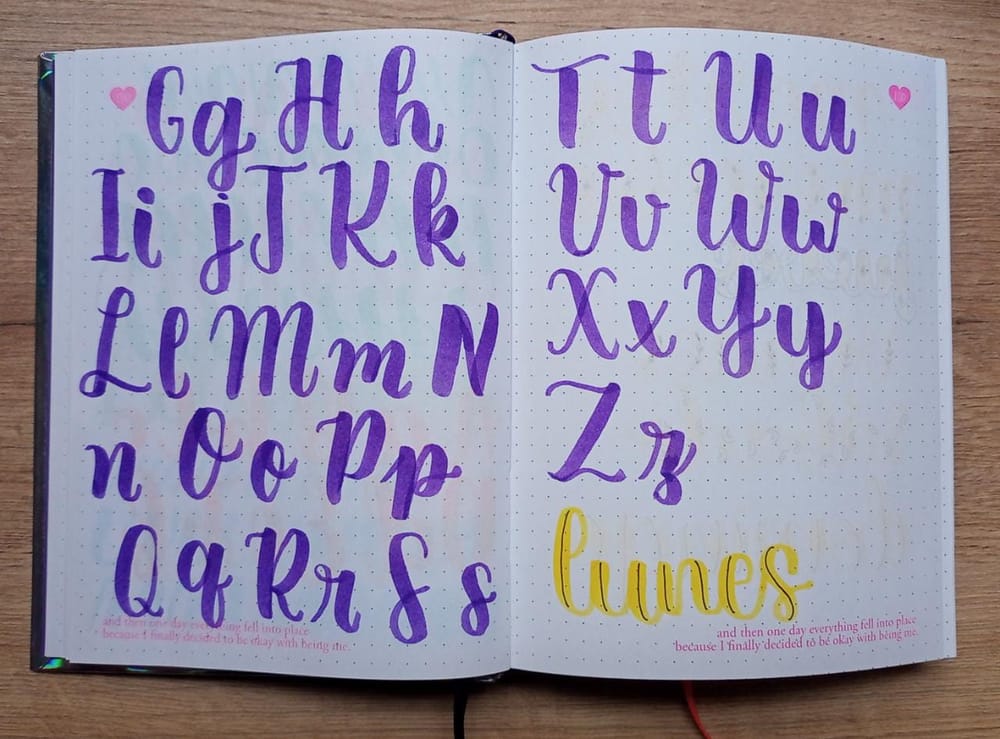 Gg H h
Ii jJ K k
L l M m N
n O o P p
Q q R r S s
and then one day everything fell into place
because I finally decided to be okay with being me.
T t U u
V v W w
X x Y y
Z z
lunes
and then one day everything fell into place
because I finally decided to be okay with being me.